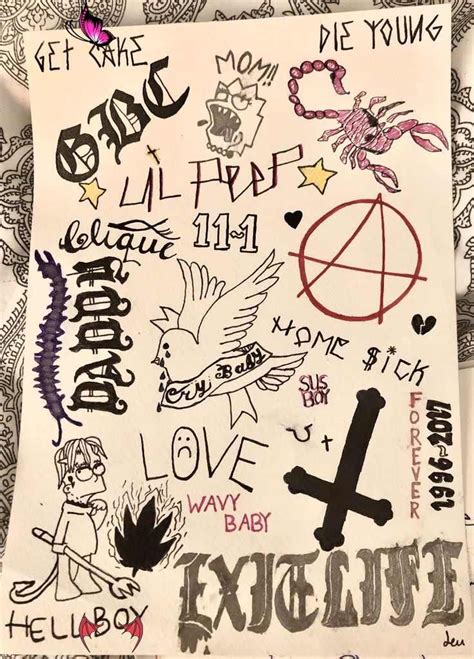 GET CAKE
DIE YOUNG
GBC
MOM!!
LIL PEEP
Clique
11-1
DADDY
Cry Baby
HOME $iCK
SUS
BOY
LOVE
WAVY
BABY
FOREVER
1996-2017
EXITLIFE
HELLBOY